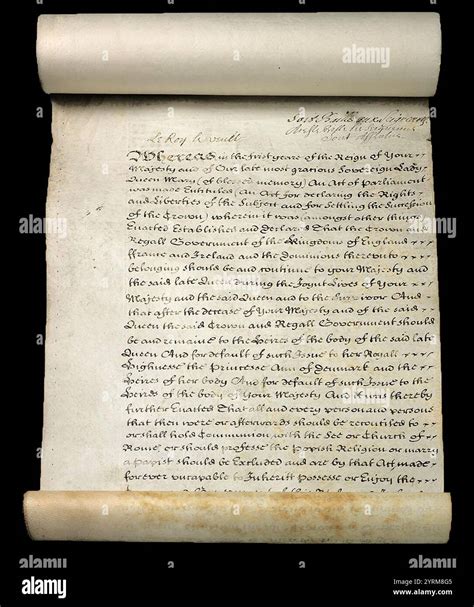 Soit Baillé aux Seigneurs
Le Roy le veult
Whereas in the first year of the Reign of Your
Majesty and of Our late most gracious Sovereign Lady
Queen Mary (of blessed memory) An Act of Parliament
was made Entituled An Act for declaring the Rights
and Liberties of the Subject and for Setling the Succession
of the Crown) wherein it was (amongst other things
Enacted Established and Declared That the Crown and
Regall Government of the Kingdoms of England
ffrance and Ireland and the Dominions thereunto
belonging should be and continue to your Majesty and
the said late Queen during the Joynt Lives of Your
Majesty and the said Queen and to the Survivor And
that after the decease of Your Majesty and of the said
Queen the said Crown and Regall Government should
be and remaine to the Heires of the body of the said late
Queen And for default of such Issue to her Royall
Highnesse the Princesse Ann of Denmark and the
Heires of her body And for default of such Issue to the
Heires of the body of Your Majesty And it was thereby
further Enacted That all and every person and persons
that then were or afterwards should be reconciled to
or shall hold Communion with the See or Church of
Rome or should professe the Popish Religion or marry
a Papist should be Excluded and are by that Act made
forever uncapable to Inheritt Possesse or Enjoy the
alamy
Image ID: 2YRM8G5
www.alamy.com